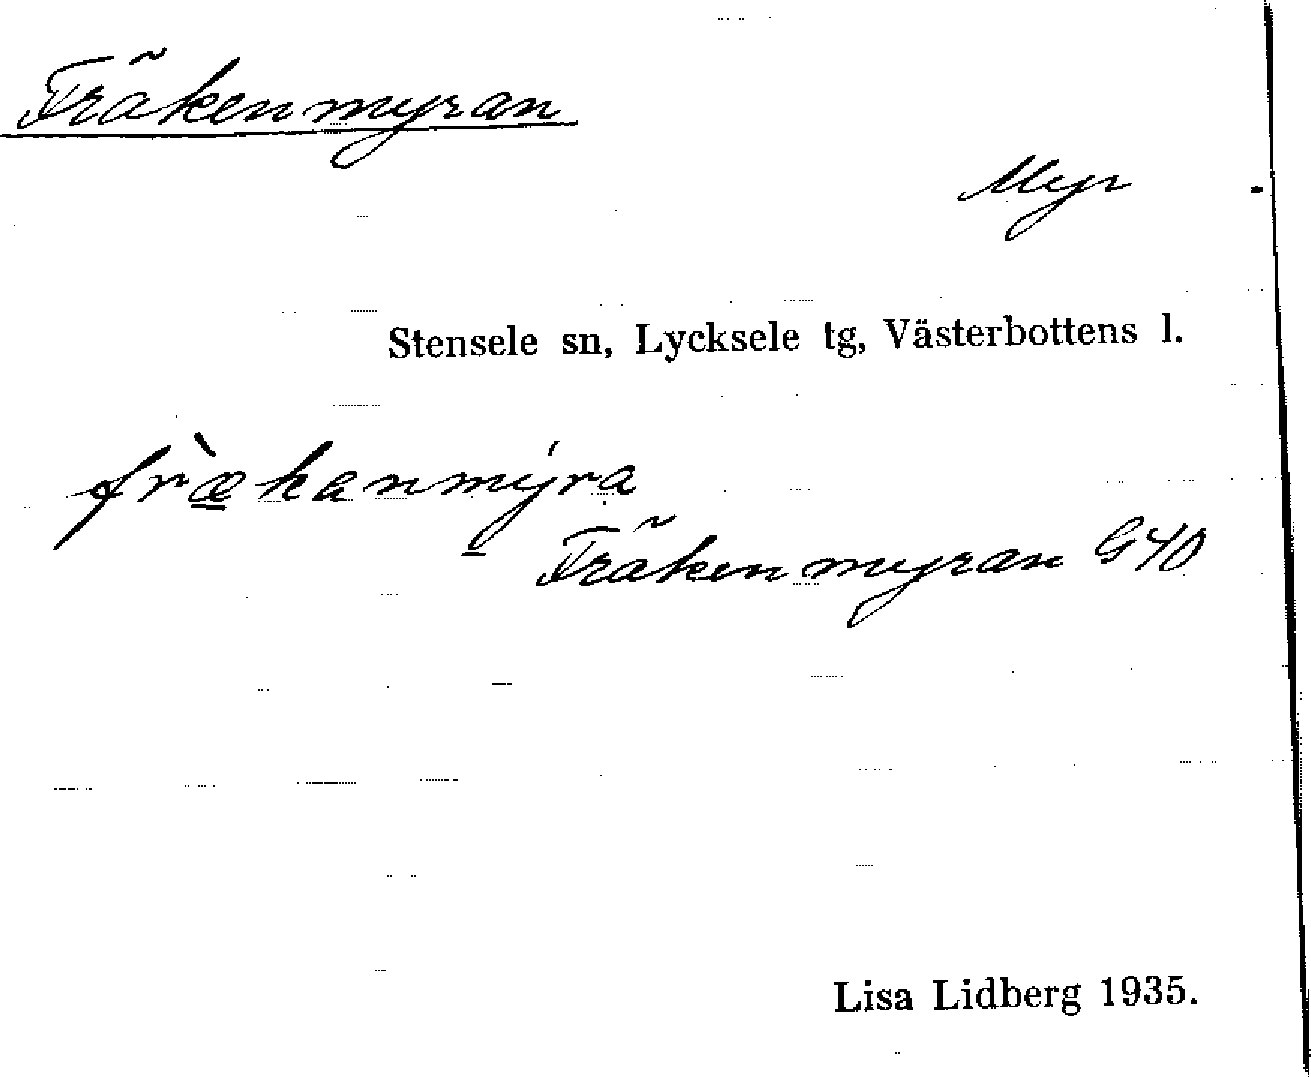 Fräkenmyran
Myr
Stensele sn, Lycksele tg, Västerbottens l.
fræ̀kanmýra
Fräkenmyran G40
Lisa Lidberg 1935.